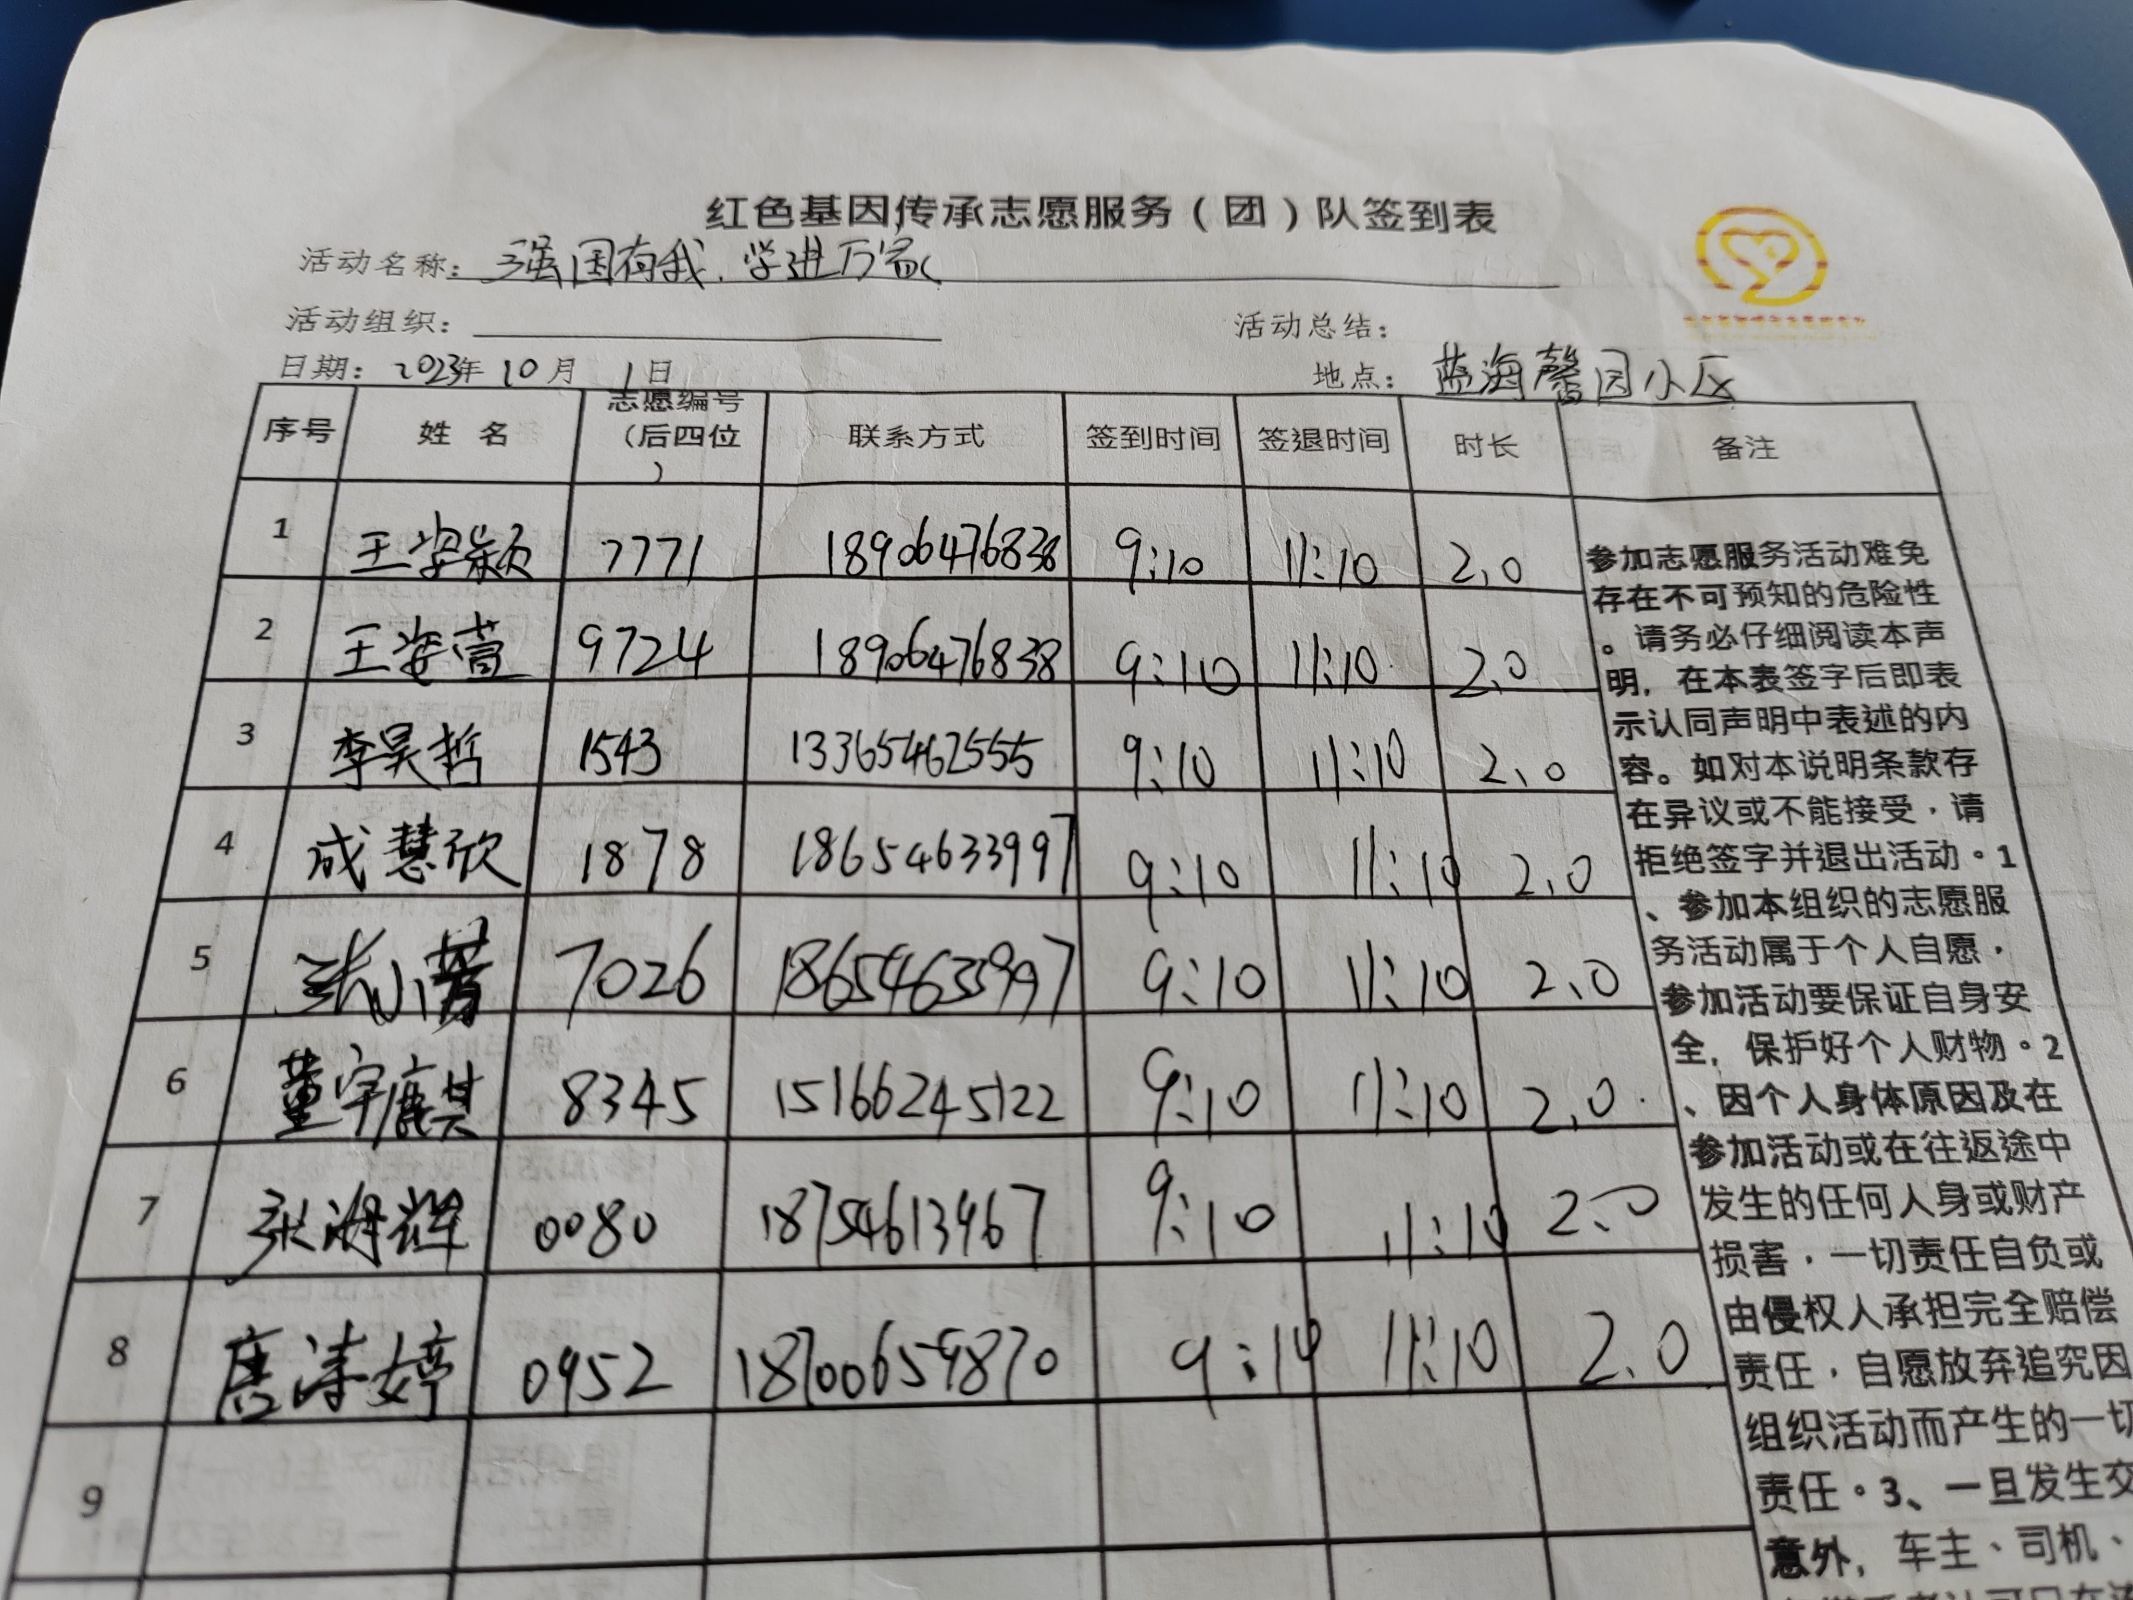 红色基因传承志愿服务（团）队签到表
活动名称：强国有我，学进万家
活动组织：
活动总结：
日期：2023年10月1日
地点：蓝海馨园小区
序号 姓名 志愿编号（后四位） 联系方式 签到时间 签退时间 时长 备注
1 王姿颖 7771 18906476838 9:10 11:10 2.0
2 王姿萱 9724 18906476838 9:10 11:10 2.0
3 李昊哲 1543 13365462555 9:10 11:10 2.0
4 成慧欣 1878 18654633997 9:10 11:10 2.0
5 张小芳 7026 18654633997 9:10 11:10 2.0
6 董宇麒 8345 15166245122 9:10 11:10 2.0
7 张海辉 0080 18754613467 9:10 11:10 2.0
8 唐涛婷 0952 18700659870 9:10 11:10 2.0
9
参加志愿服务活动难免
存在不可预知的危险性
。请务必仔细阅读本声
明，在本表签字后即表
示认同声明中表述的内
容。如对本说明条款存
在异议或不能接受，请
拒绝签字并退出活动。1
、参加本组织的志愿服
务活动属于个人自愿，
参加活动要保证自身安
全，保护好个人财物。2
、因个人身体原因及在
参加活动或在往返途中
发生的任何人身或财产
损害，一切责任自负或
由侵权人承担完全赔偿
责任，自愿放弃追究因
组织活动而产生的一切
责任。3、一旦发生交
意外，车主、司机、